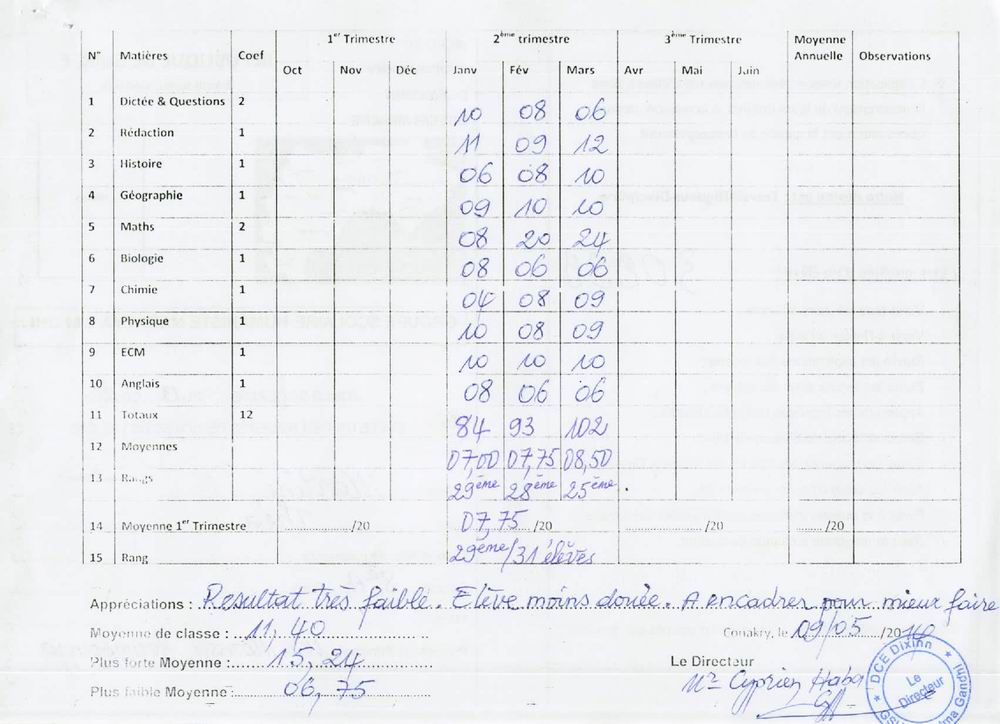 1er Trimestre 2ème trimestre 3ème Trimestre
N° Matières Coef Oct Nov Déc Janv Fév Mars Avr Mai Juin Moyenne Annuelle Observations
1 Dictée & Questions 2 10 08 06
2 Rédaction 1 11 09 12
3 Histoire 1 06 08 10
4 Géographie 1 09 10 10
5 Maths 2 08 20 24
6 Biologie 1 08 06 06
7 Chimie 1 04 08 09
8 Physique 1 10 08 09
9 ECM 1 10 10 10
10 Anglais 1 08 06 06
11 Totaux 12 84 93 102
12 Moyennes 07,00 07,75 08,50
13 Rangs 29ème 28ème 25ème
14 Moyenne 1er Trimestre ............../20 07,75 /20 ............../20 ......../20
15 Rang 29ème/31 élèves
Appréciations : Resultat très faible. Elève moins douée. A encadrer pour mieux faire
Moyenne de classe : 11,40
Conakry, le 09/05 /2016
Plus forte Moyenne : 15,24
Le Directeur
Plus faible Moyenne : 06,75
Mr Cyprien Haba
DCE Dixinn
Le Directeur